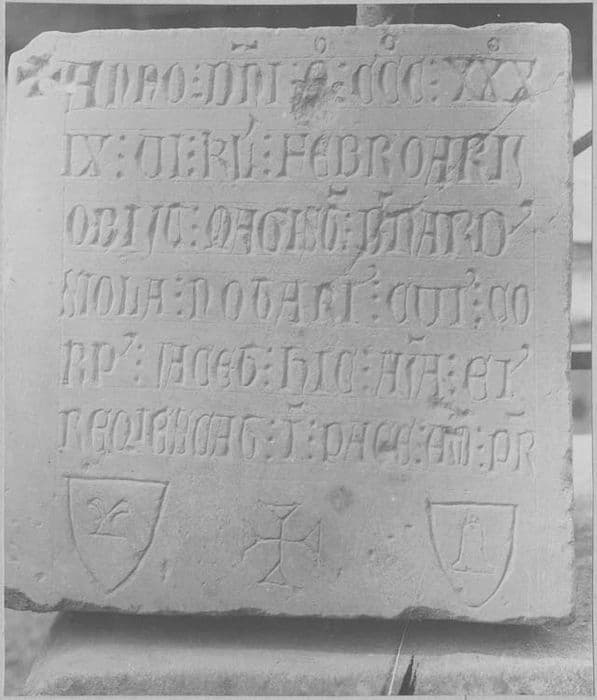 ✠ ANNO : DNI : M : CCC : XXX
IX : VI : KL : FEBROARII
OBIIT : MAGIST : BTARD'
VIOLA : NOTARI' : CUI' : CO
RP' : IACET : HIC : AIA : EI'
REQIESCAT : I : PACE : AM : PR